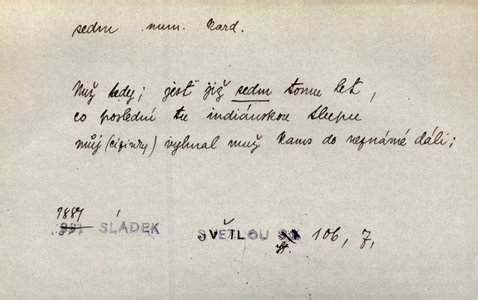 sedm num. Kard.
Nuž tedy; jesť již sedm tomu let,
co poslední tu indiánskou tlupu
můj (cizinný) vyhnal muž kams do neznámé dáli;
1887
SLÁDEK SVĚTLOU st. 106, 7,